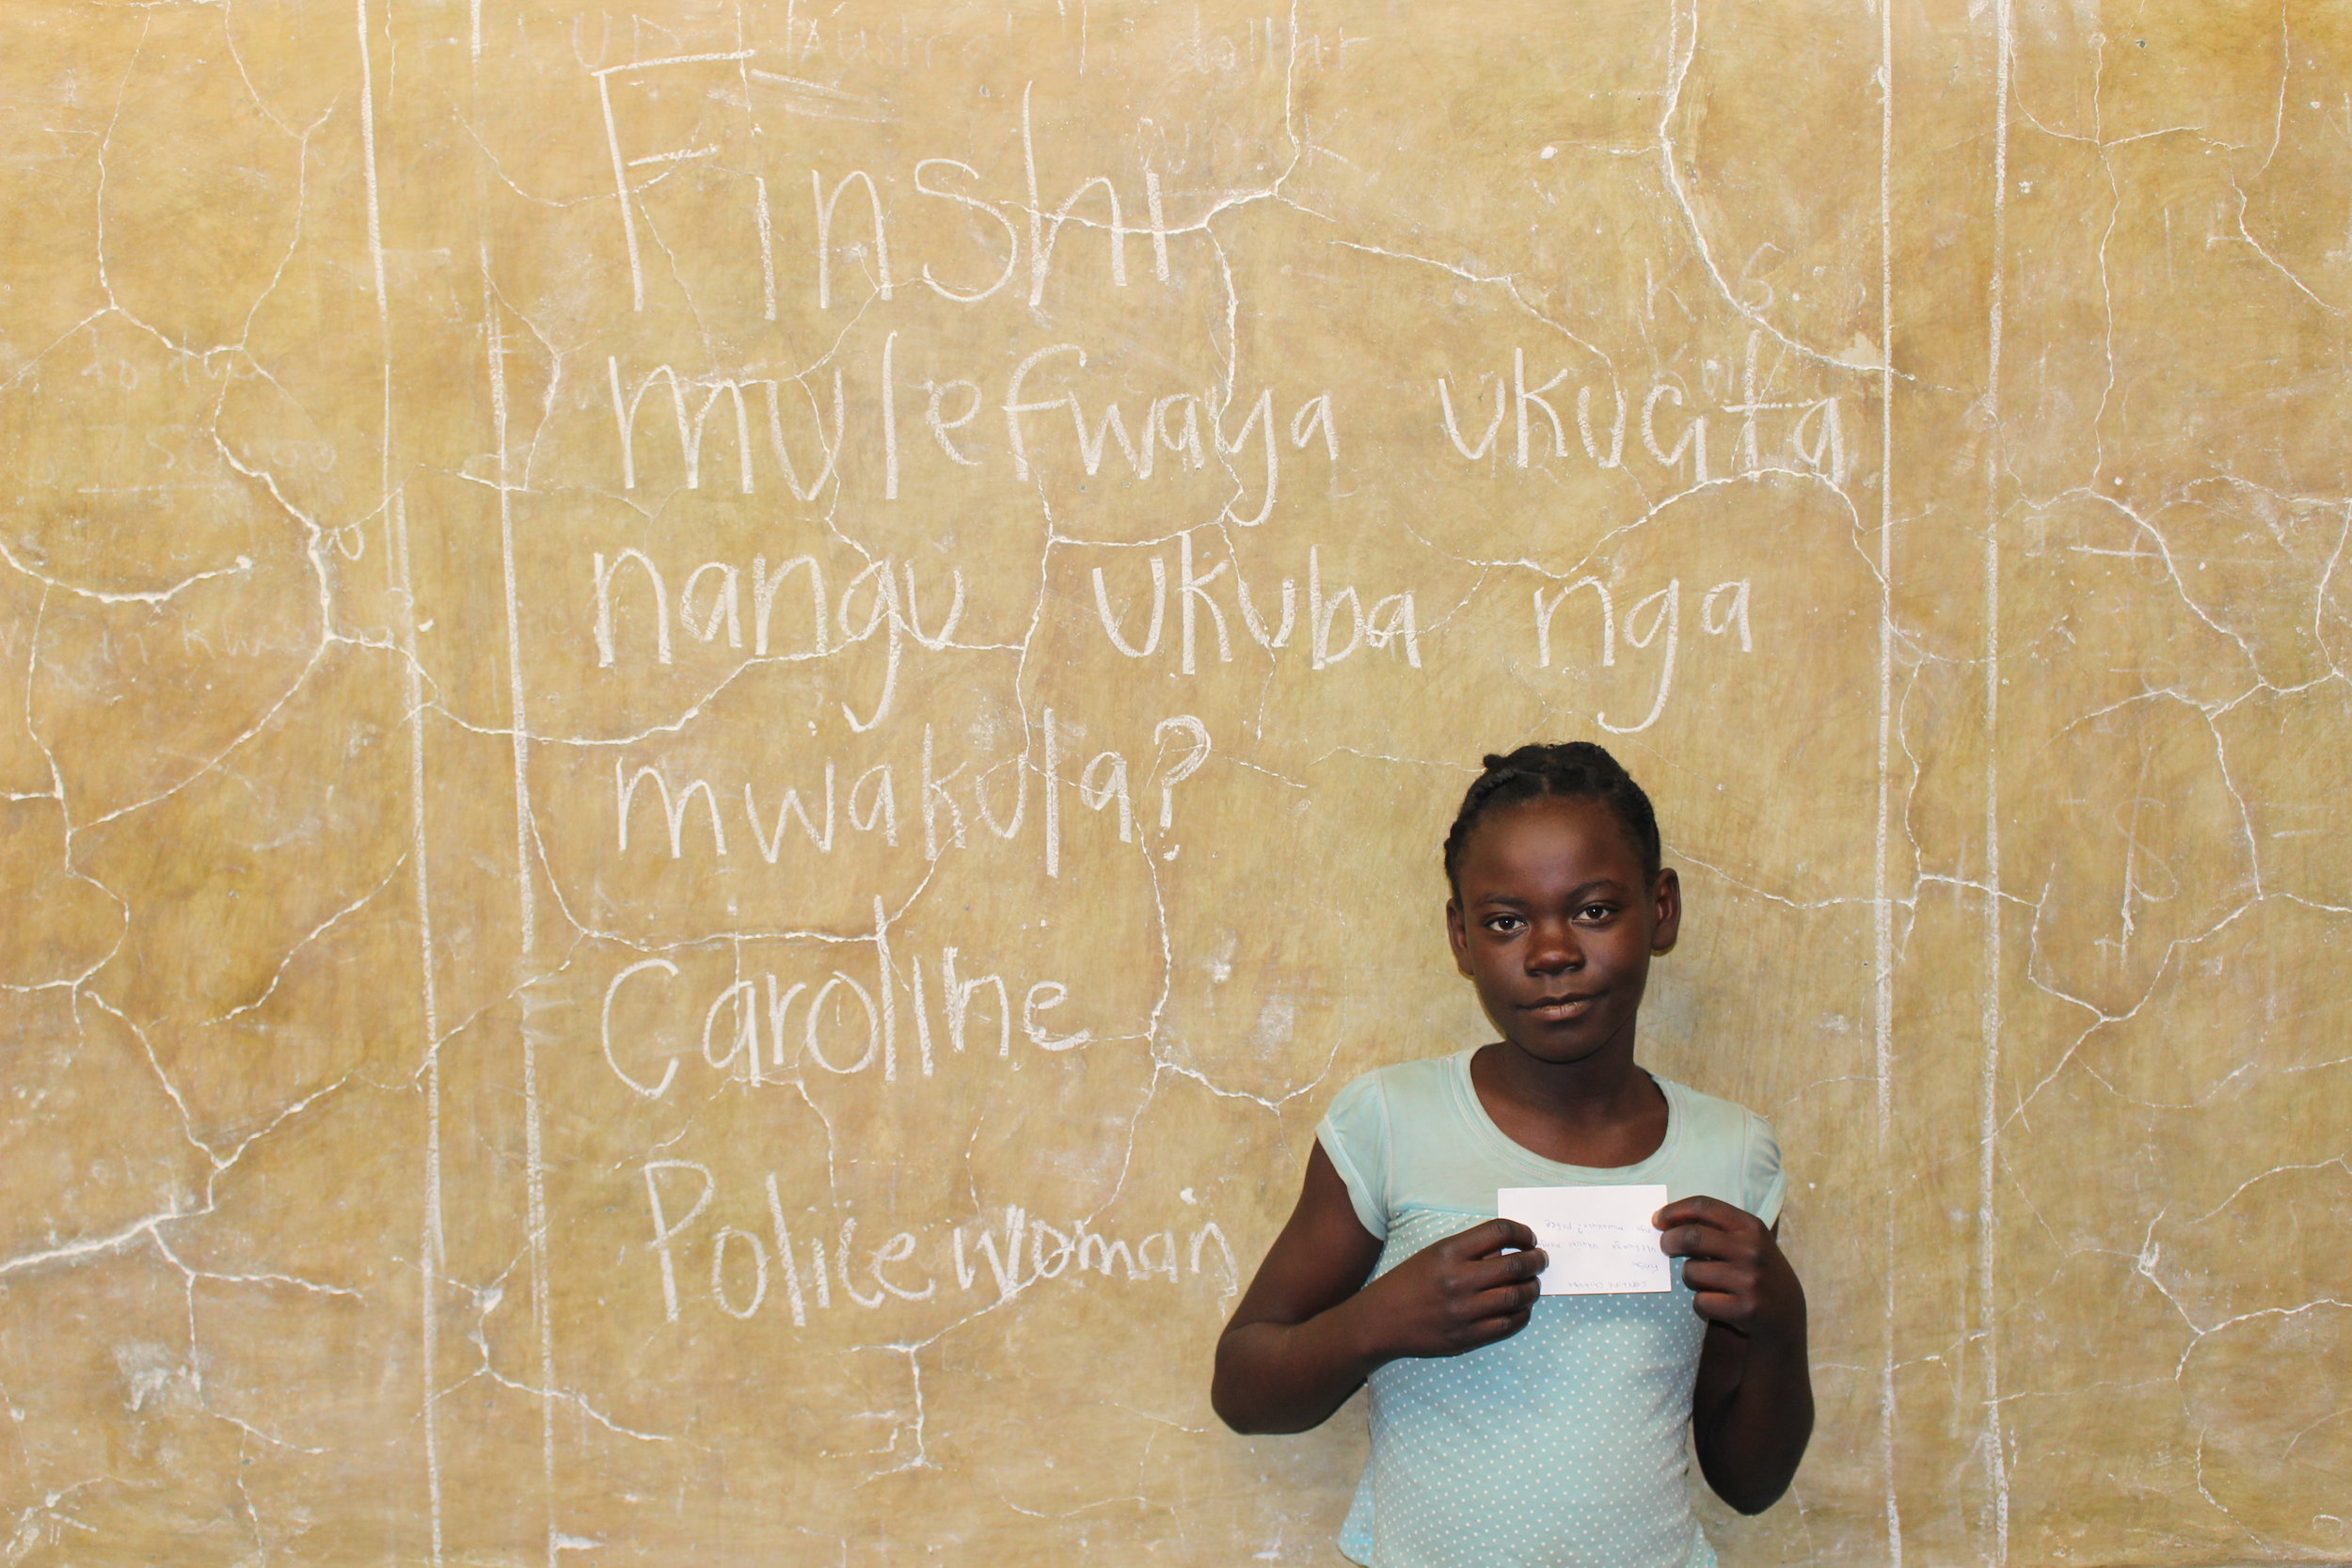 Finshi
mulefwaya ukucita
nangu ukuba nga
mwakula?
Caroline
Policewoman